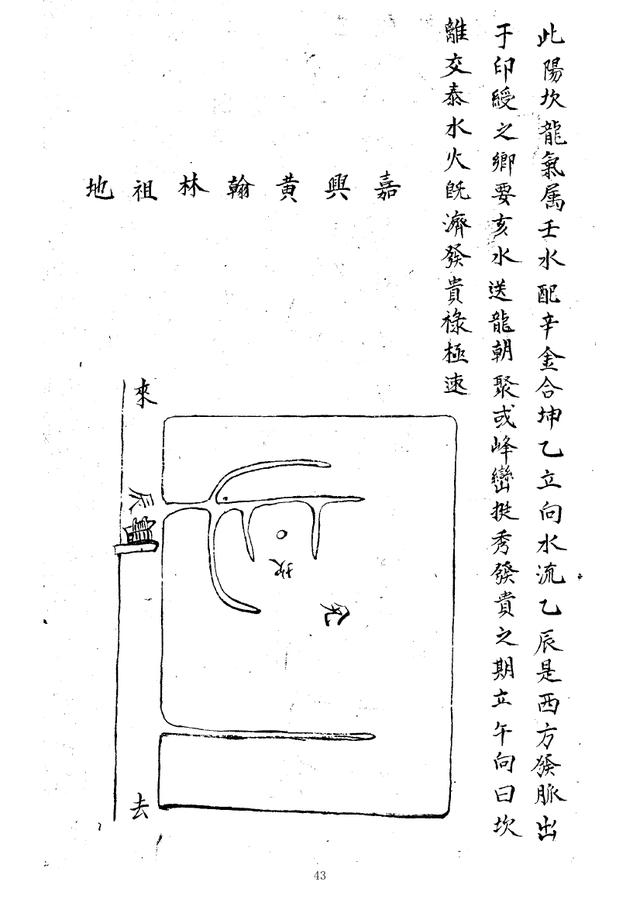 此陽坎龍氣属壬水配辛金合坤乙立向水流乙辰是西方發脈出
于印綬之鄉要亥水送龍朝聚或峰巒挺秀發貴之期立午向曰坎
離交泰水火既濟發貴祿極速
嘉興黃翰林祖地
來
辰
坎
去
43